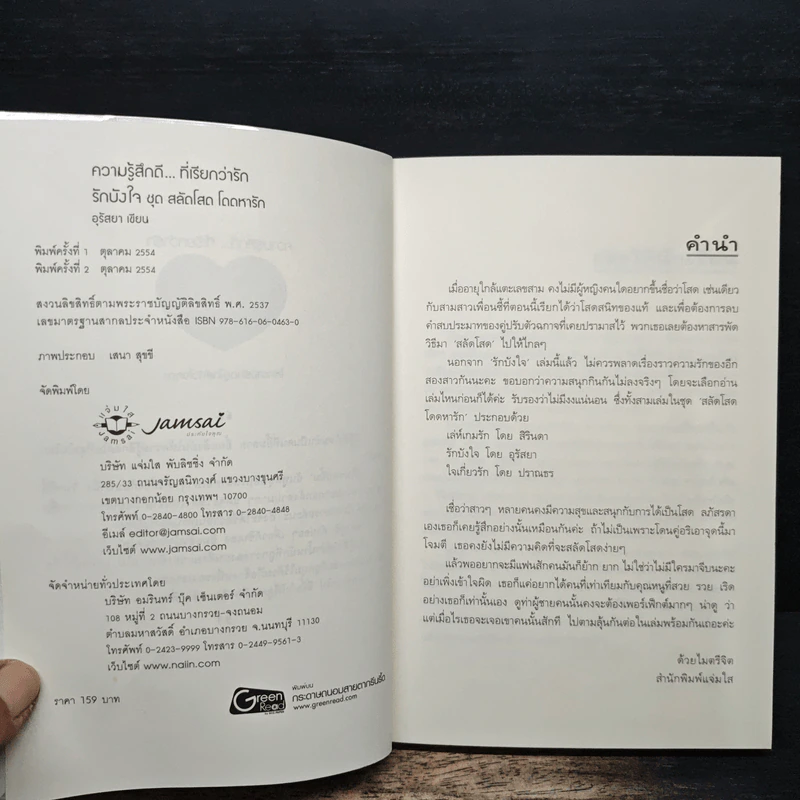 ความรู้สึกดี... ที่เรียกว่ารัก
รักบังใจ ชุด สลัดโสด โดดหารัก
อุรัสยา เขียน
พิมพ์ครั้งที่ 1 ตุลาคม 2554
พิมพ์ครั้งที่ 2 ตุลาคม 2554
สงวนลิขสิทธิ์ตามพระราชบัญญัติลิขสิทธิ์ พ.ศ. 2537
เลขมาตรฐานสากลประจำหนังสือ ISBN 978-616-06-0463-0
ภาพประกอบ เสนา สุขขี
จัดพิมพ์โดย
แจ่มใส
Jamsai
Jamsai
บริษัท แจ่มใส พับลิชชิ่ง จำกัด
285/33 ถนนจรัญสนิทวงศ์ แขวงบางขุนศรี
เขตบางกอกน้อย กรุงเทพฯ 10700
โทรศัพท์ 0-2840-4800 โทรสาร 0-2840-4848
อีเมล์ editor@jamsai.com
เว็บไซต์ www.jamsai.com
จัดจำหน่ายทั่วประเทศโดย
บริษัท อมรินทร์ บุ๊ค เซ็นเตอร์ จำกัด
108 หมู่ที่ 2 ถนนบางกรวย-จงถนอม
ตำบลมหาสวัสดิ์ อำเภอบางกรวย จ.นนทบุรี 11130
โทรศัพท์ 0-2423-9999 โทรสาร 0-2449-9561-3
เว็บไซต์ www.naiin.com
ราคา 159 บาท
Green Read
พิมพ์บน
กระดาษถนอมสายตากรีนรี้ด
www.greenread.com
คำนำ
เมื่ออายุใกล้แตะเลขสาม คงไม่มีผู้หญิงคนใดอยากขึ้นชื่อว่าโสด เช่นเดียว
กับสามสาวเพื่อนซี้ที่ตอนนี้เรียกได้ว่าโสดสนิทของแท้ และเพื่อต้องการลบ
คำสบประมาทของคู่ปรับตัวฉกาจที่เคยปรามาสไว้ พวกเธอเลยต้องหาสารพัด
วิธีมา 'สลัดโสด' ไปให้ไกลๆ
นอกจาก 'รักบังใจ' เล่มนี้แล้ว ไม่ควรพลาดเรื่องราวความรักของอีก
สองสาวกันนะคะ ขอบอกว่าความสนุกกินกันไม่ลงจริงๆ โดยจะเลือกอ่าน
เล่มไหนก่อนก็ได้ค่ะ รับรองว่าไม่มีงงแน่นอน ซึ่งทั้งสามเล่มในชุด 'สลัดโสด
โดดหารัก' ประกอบด้วย
เล่ห์เกมรัก โดย สิรินดา
รักบังใจ โดย อุรัสยา
ใจเกี่ยวรัก โดย ปราณธร
เชื่อว่าสาวๆ หลายคนคงมีความสุขและสนุกกับการได้เป็นโสด ลภัสรดา
เองเธอก็เคยรู้สึกอย่างนั้นเหมือนกันค่ะ ถ้าไม่เป็นเพราะโดนคู่อริเอาจุดนี้มา
โจมตี เธอคงยังไม่มีความคิดที่จะสลัดโสดง่ายๆ
แล้วพออยากจะมีแฟนสักคนมันก็ย้าก ยาก ไม่ใช่ว่าไม่มีใครมาจีบนะคะ
อย่าเพิ่งเข้าใจผิด เธอก็แค่อยากได้คนที่เท่าเทียมกับคุณหนูที่สวย รวย เริด
อย่างเธอก็เท่านั้นเอง ดูท่าผู้ชายคนนั้นคงจะต้องเพอร์เฟ็กต์มากๆ น่าดู ว่า
แต่เมื่อไรเธอจะเจอเขาคนนั้นสักที ไปตามลุ้นกันต่อในเล่มพร้อมกันเถอะค่ะ
ด้วยไมตรีจิต
สำนักพิมพ์แจ่มใส